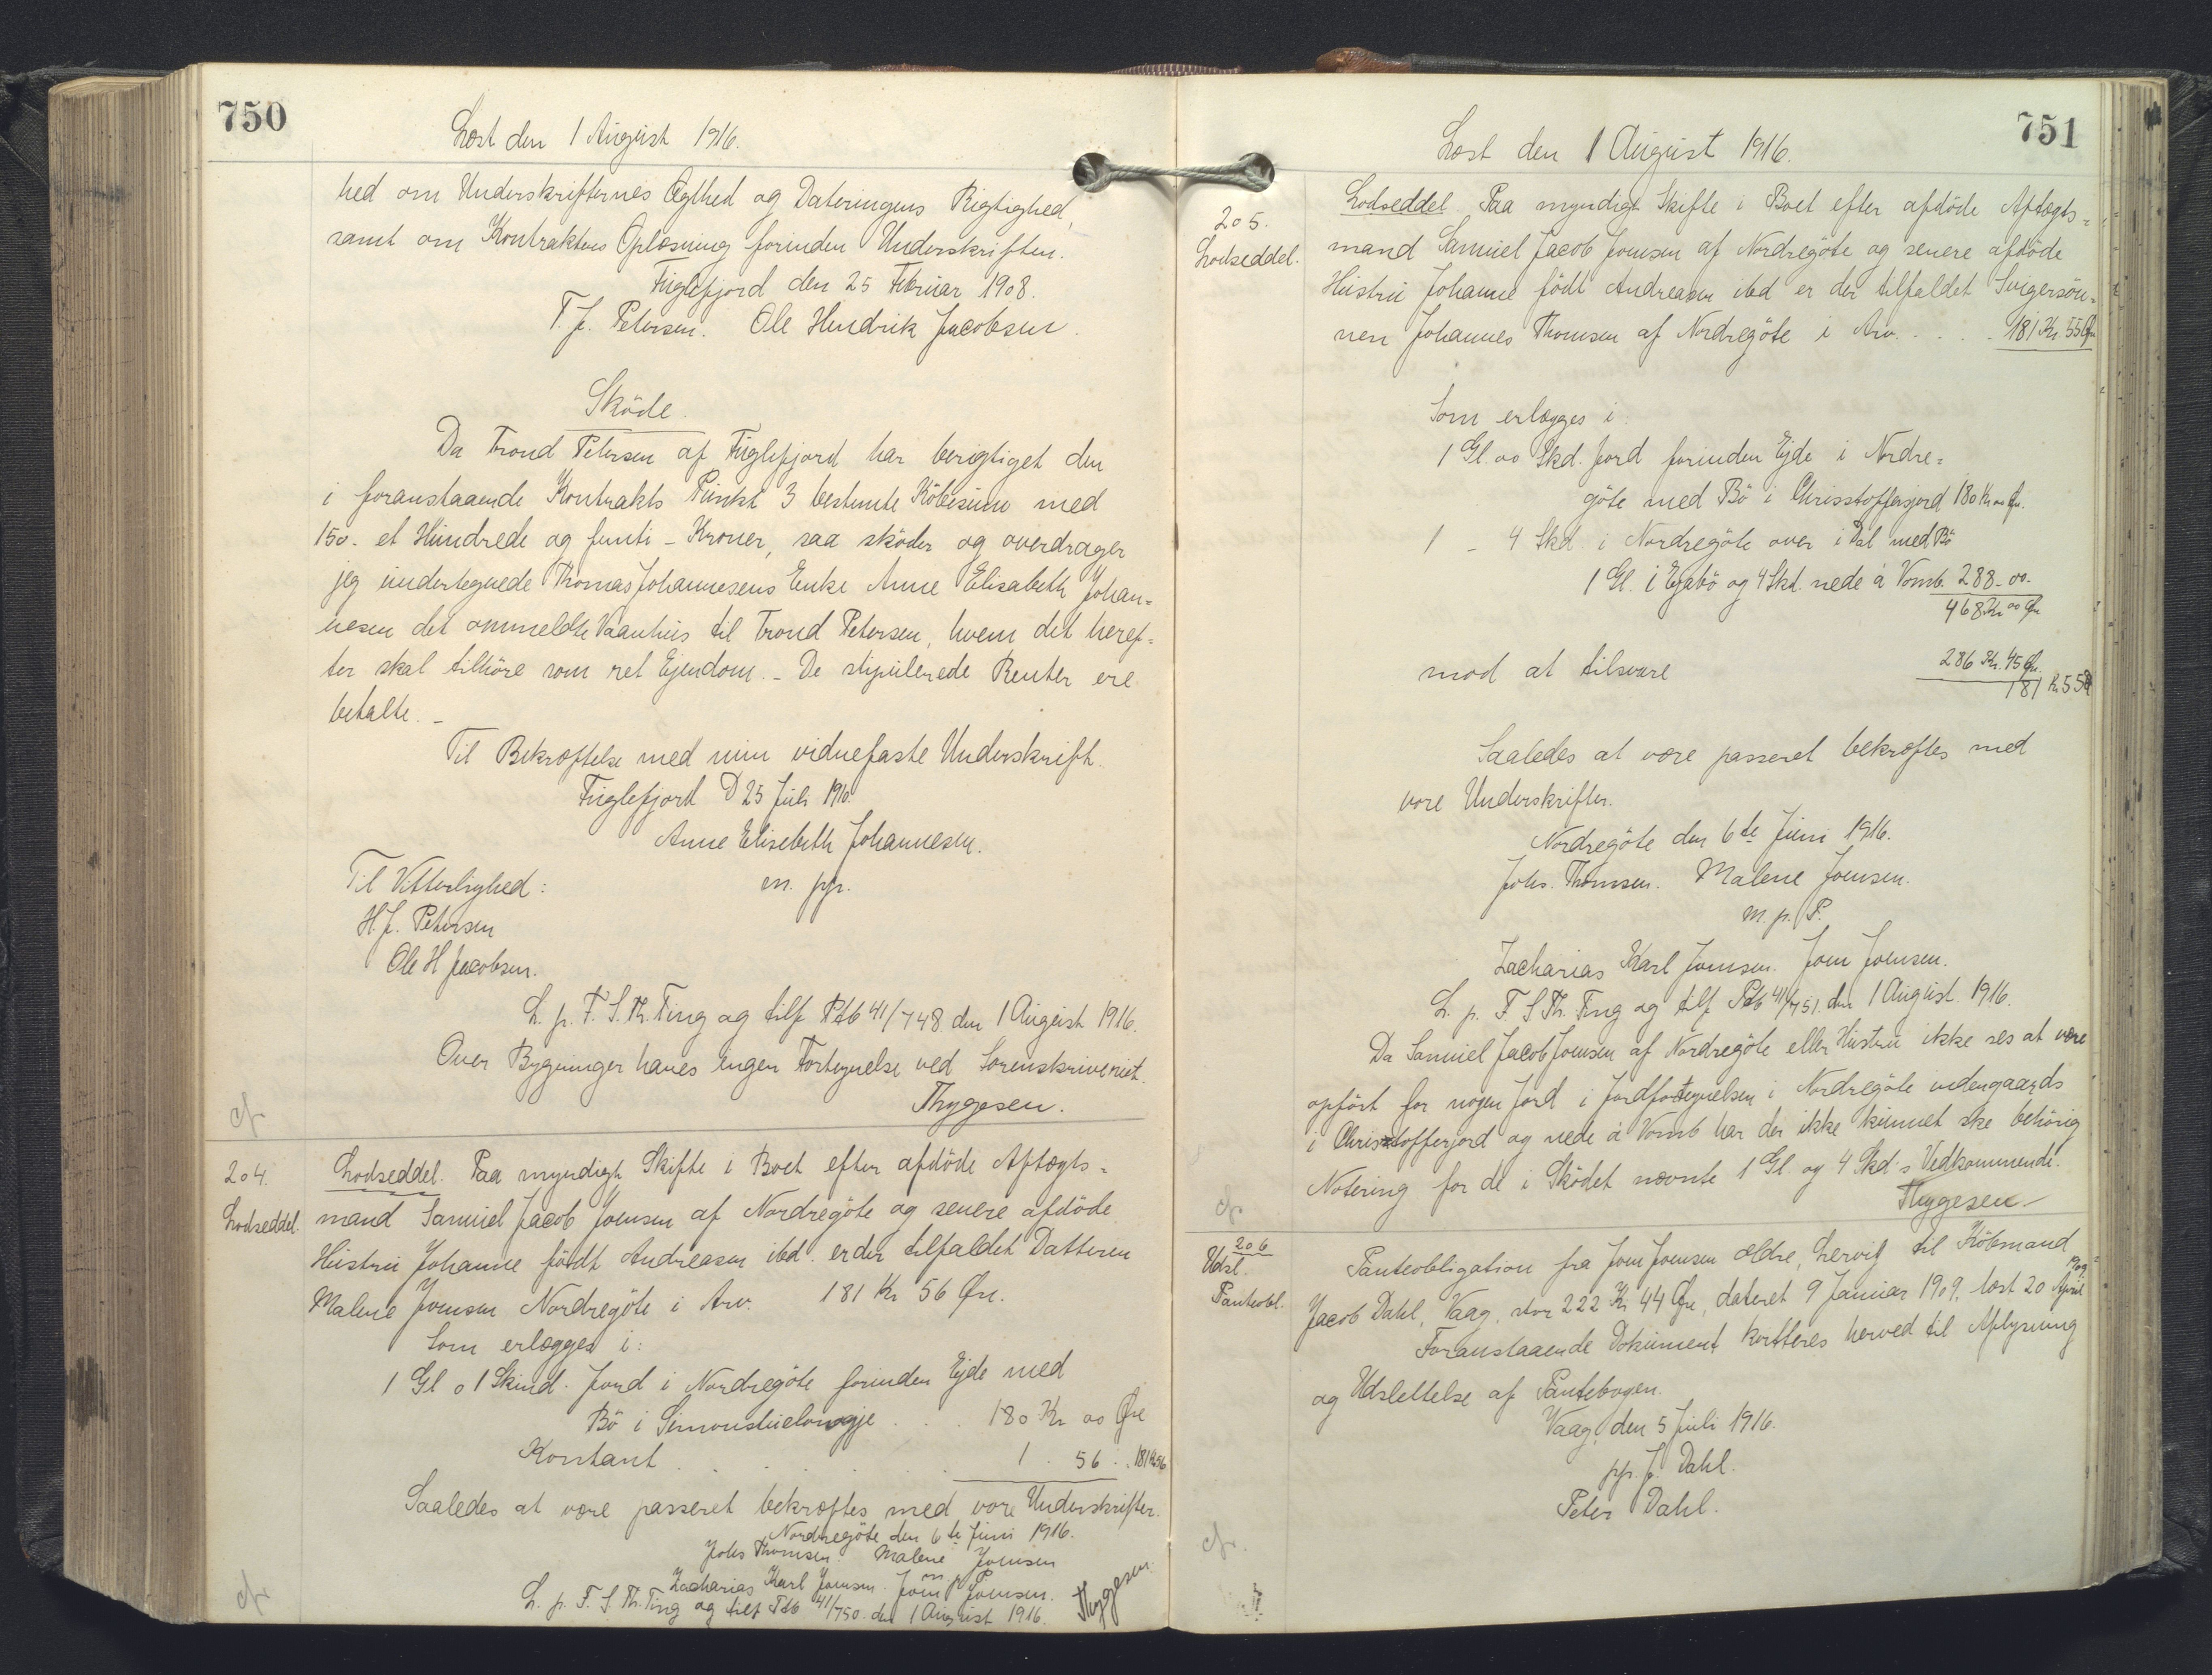 750
Læst den 1 August 1916.
hed om Underskrifternes Ægthed og Dateringens Rigtighed,
samt om Kontraktens Oplæsning forinden Underskriften.
Fuglefjord den 25 Februar 1908.
T. J. Petersen. Ole Hendrik Jacobsen.
Sköde.
Da Trond Petersen af Fuglefjord har berigtiget den
i foranstaaende Kontrakts Punkt 3 bestemte Köbesum med
150 - et Hundrede og femti - Kroner, saa sköder og overdrager
jeg undertegnede Thomas Johannesens Enke Anne Elisabeth Johan=
nesen det ommeldte Vaanhus til Trond Petersen, hvem det heref=
ter skal tilhöre som ret Ejendom. - De stipulerede Renter ere
betalte. -
Til Bekræftelse med min vidnefaste Underskrift.
Fuglefjord D 25 Juli 1910.
Anne Elisebeth Johannesen.
m. pp.
Til Vitterlighed:
H. J. Petersen
Ole H Jacobsen.
L. p. F. S. Th. Ting og tilf Ptb 41/748 den 1 August 1916.
Over Bygninger haves ingen Fortegnelse ved Sorenskriveriet.
Thygesen.
cfr
204.
Lodseddel.
Lodseddel. Paa myndigt Skifte i Boet efter afdöde Aftægts=
mand Samuel Jacob Joensen af Nordregöte og senere afdöde
Hustru Johanne födt Andreasen ibd. er der tilfaldet Datteren
Malene Joensen Nordregöte i Arv. 181 Kr 56 Øre.
Som erlægges i:
1 Gl 01 Skind. Jord i Nordregöte forinden Ejde med
Bö i . . . 180 Kr 00 Øre
Kontant . . . . 1 . 56 . . 181 Kr 56
Saaledes at være passeret bekræftes med vore Underskrifter.
Nordregöte den 6te Juni 1916.
Johs Thomsen. Malene Joensen
m. p. P.
Zacharias Karl Joensen. Joen Joensen.
L. p. F. S. Th. Ting og tilf Ptb 41/750 den 1 August 1916.
Thygesen
cfr
751
Læst den 1 August 1916.
205.
Lodseddel.
Lodseddel. Paa myndigt Skifte i Boet efter afdöde Aftægts=
mand Samuel Jacob Joensen af Nordregöte og senere afdöde
Hustru Johanne födt Andreasen ibd er der tilfaldet Svigersön=
nen Johannes Thomsen af Nordregöte i Arv. . . . . 181 Kr. 55 Øre
Som erlægges i:
1 Gl. 00 Skd. Jord forinden Ejde i Nordre=
göte med Bö i Chrisstoffersjord 180 Kr 00 Øre.
1 - 4 Skd i Nordregöte over i Dal med Bö
1 Gl. i Ejabö og 4 Skd. nede á Vomb. 288 - 00.
468 Kr 00 Øre
mod at tilsvare 286 Kr. 45 Øre.
181 Kr 55
Saaledes at være passeret bekræftes med
vore Underskrifter.
Nordregöte den 6te Juni 1916.
Johs. Thomsen. Malene Joensen.
m. p. P.
Zacharias Karl Joensen. Joen Joensen.
L. p. F. S Th. Ting og tilf Ptb 41/751 den 1 August 1916.
Da Samuel Jacob Joensen af Nordregöte eller Hustru ikke ses at være
opfört for nogen Jord i Jordfortegnelsen i Nordregöte indengaards
i Chrisstofferjord og nede á Vomb har der ikke kunnet ske behörig
Notering for de i Sködet nævnte 1 Gl. og 4 Skd's Vedkommende.
Thygesen
cfr
206
Udsl.
Panteobl.
Panteobligation fra Joen Joensen ældre, Lervig til Köbmand
Jacob Dahl, Vaag, stor 222 Kr 44 Øre, dateret 9 Januar 1909, læst 20 April 1909.
Foranstaaende Dokument kvitteres herved til Aflysning
og Udslettelse af Pantebogen.
Vaag, den 5 Juli 1916.
pp. J. Dahl.
Peter Dahl.
cfr.